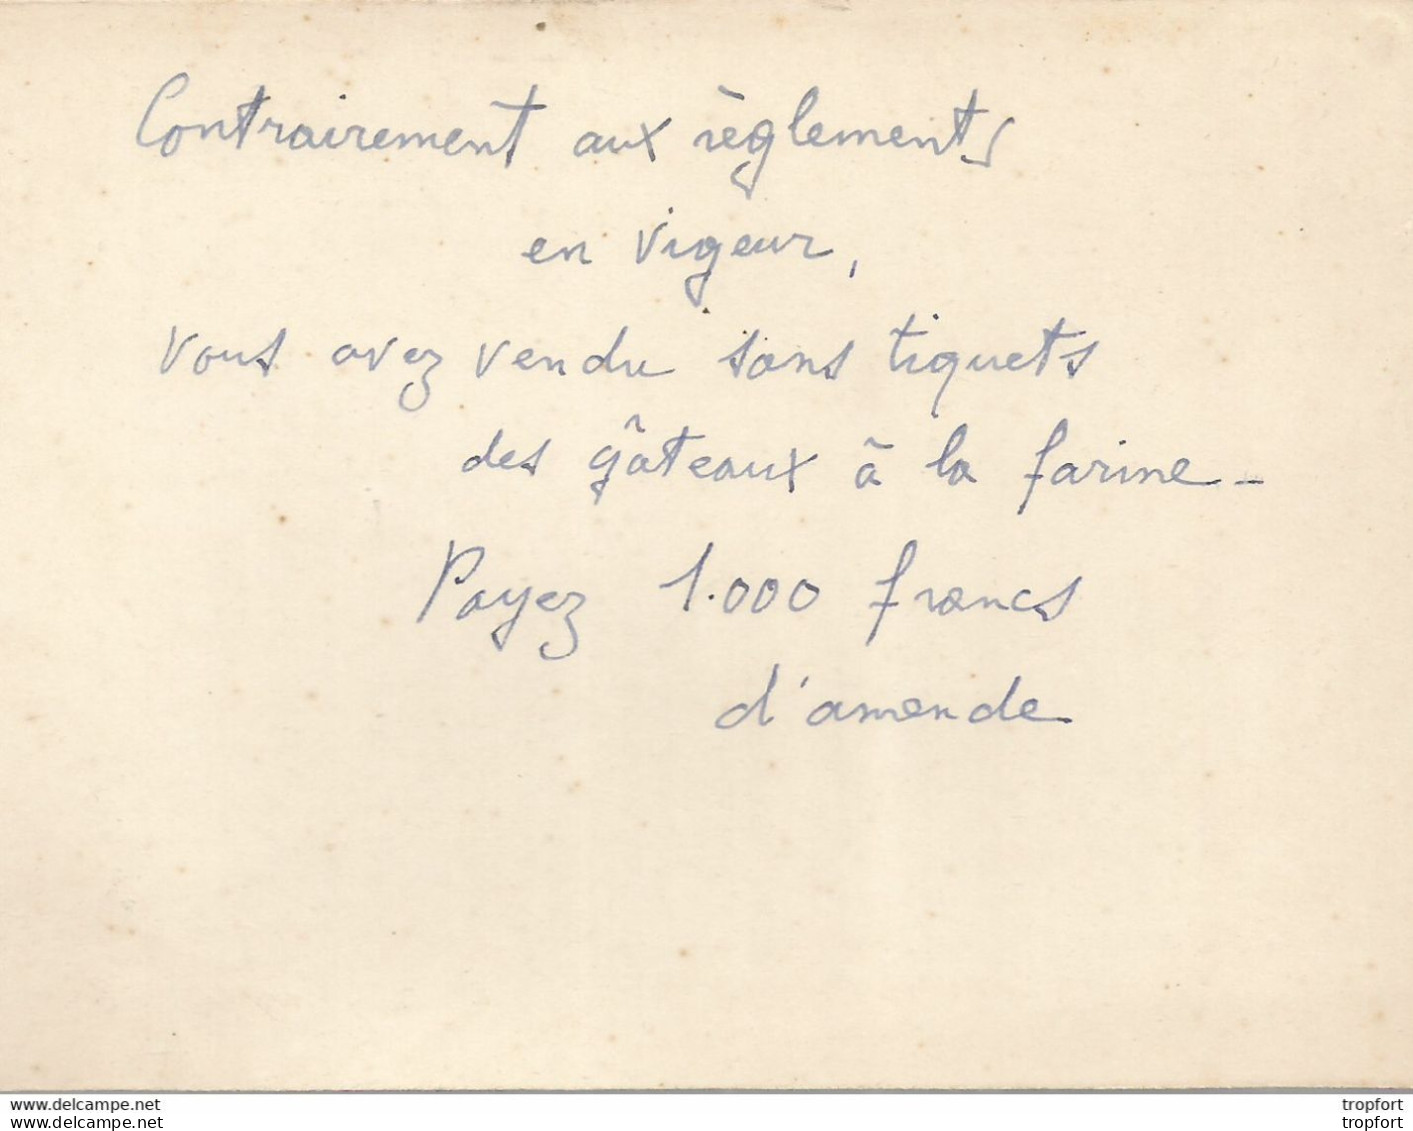 Contrairement aux règlements
en vigeur,
vous avez vendu sans tiquets
des gâteaux à la farine -
Payez 1.000 francs
d'amende
www.delcampe.net
www.delcampe.net
tropfort
tropfort